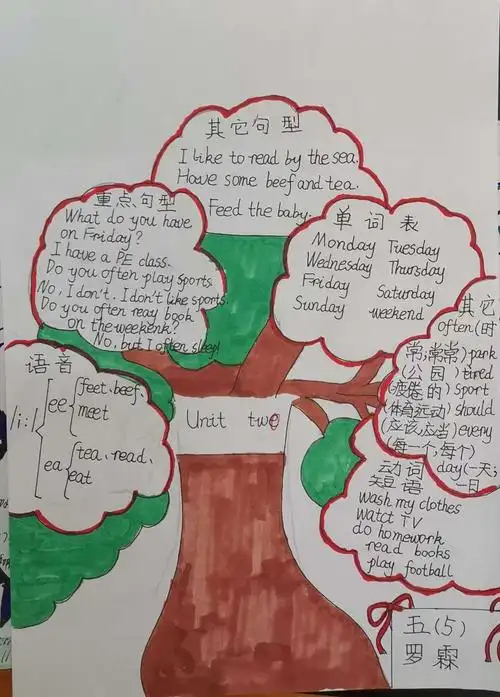 其它句型
I like to read by the sea.
Have some beef and tea.
Feed the baby.
重点句型
What do you have
on Friday?
I have a PE class.
Do you often play sports.
No, I don't. I don't like sports.
Do you often reay book
on the weekenk?
No, but I often sleep!
单词表
Monday Tuesday
Wednesday Thursday
Friday Saturday
Sunday weekend
其它
often(时
常;常常)park
(公园)tired
(疲倦的)sport
(体育运动)should
(应该;应当)every
(每一个;每个)
day(一天;
一日
语音
/i:/
ee
feet、beef、
meet
ea
tea、read、
eat
Unit two
动词
短语
wash my clothes
watct TV
do homework
read books
play football
五(5)
罗霖